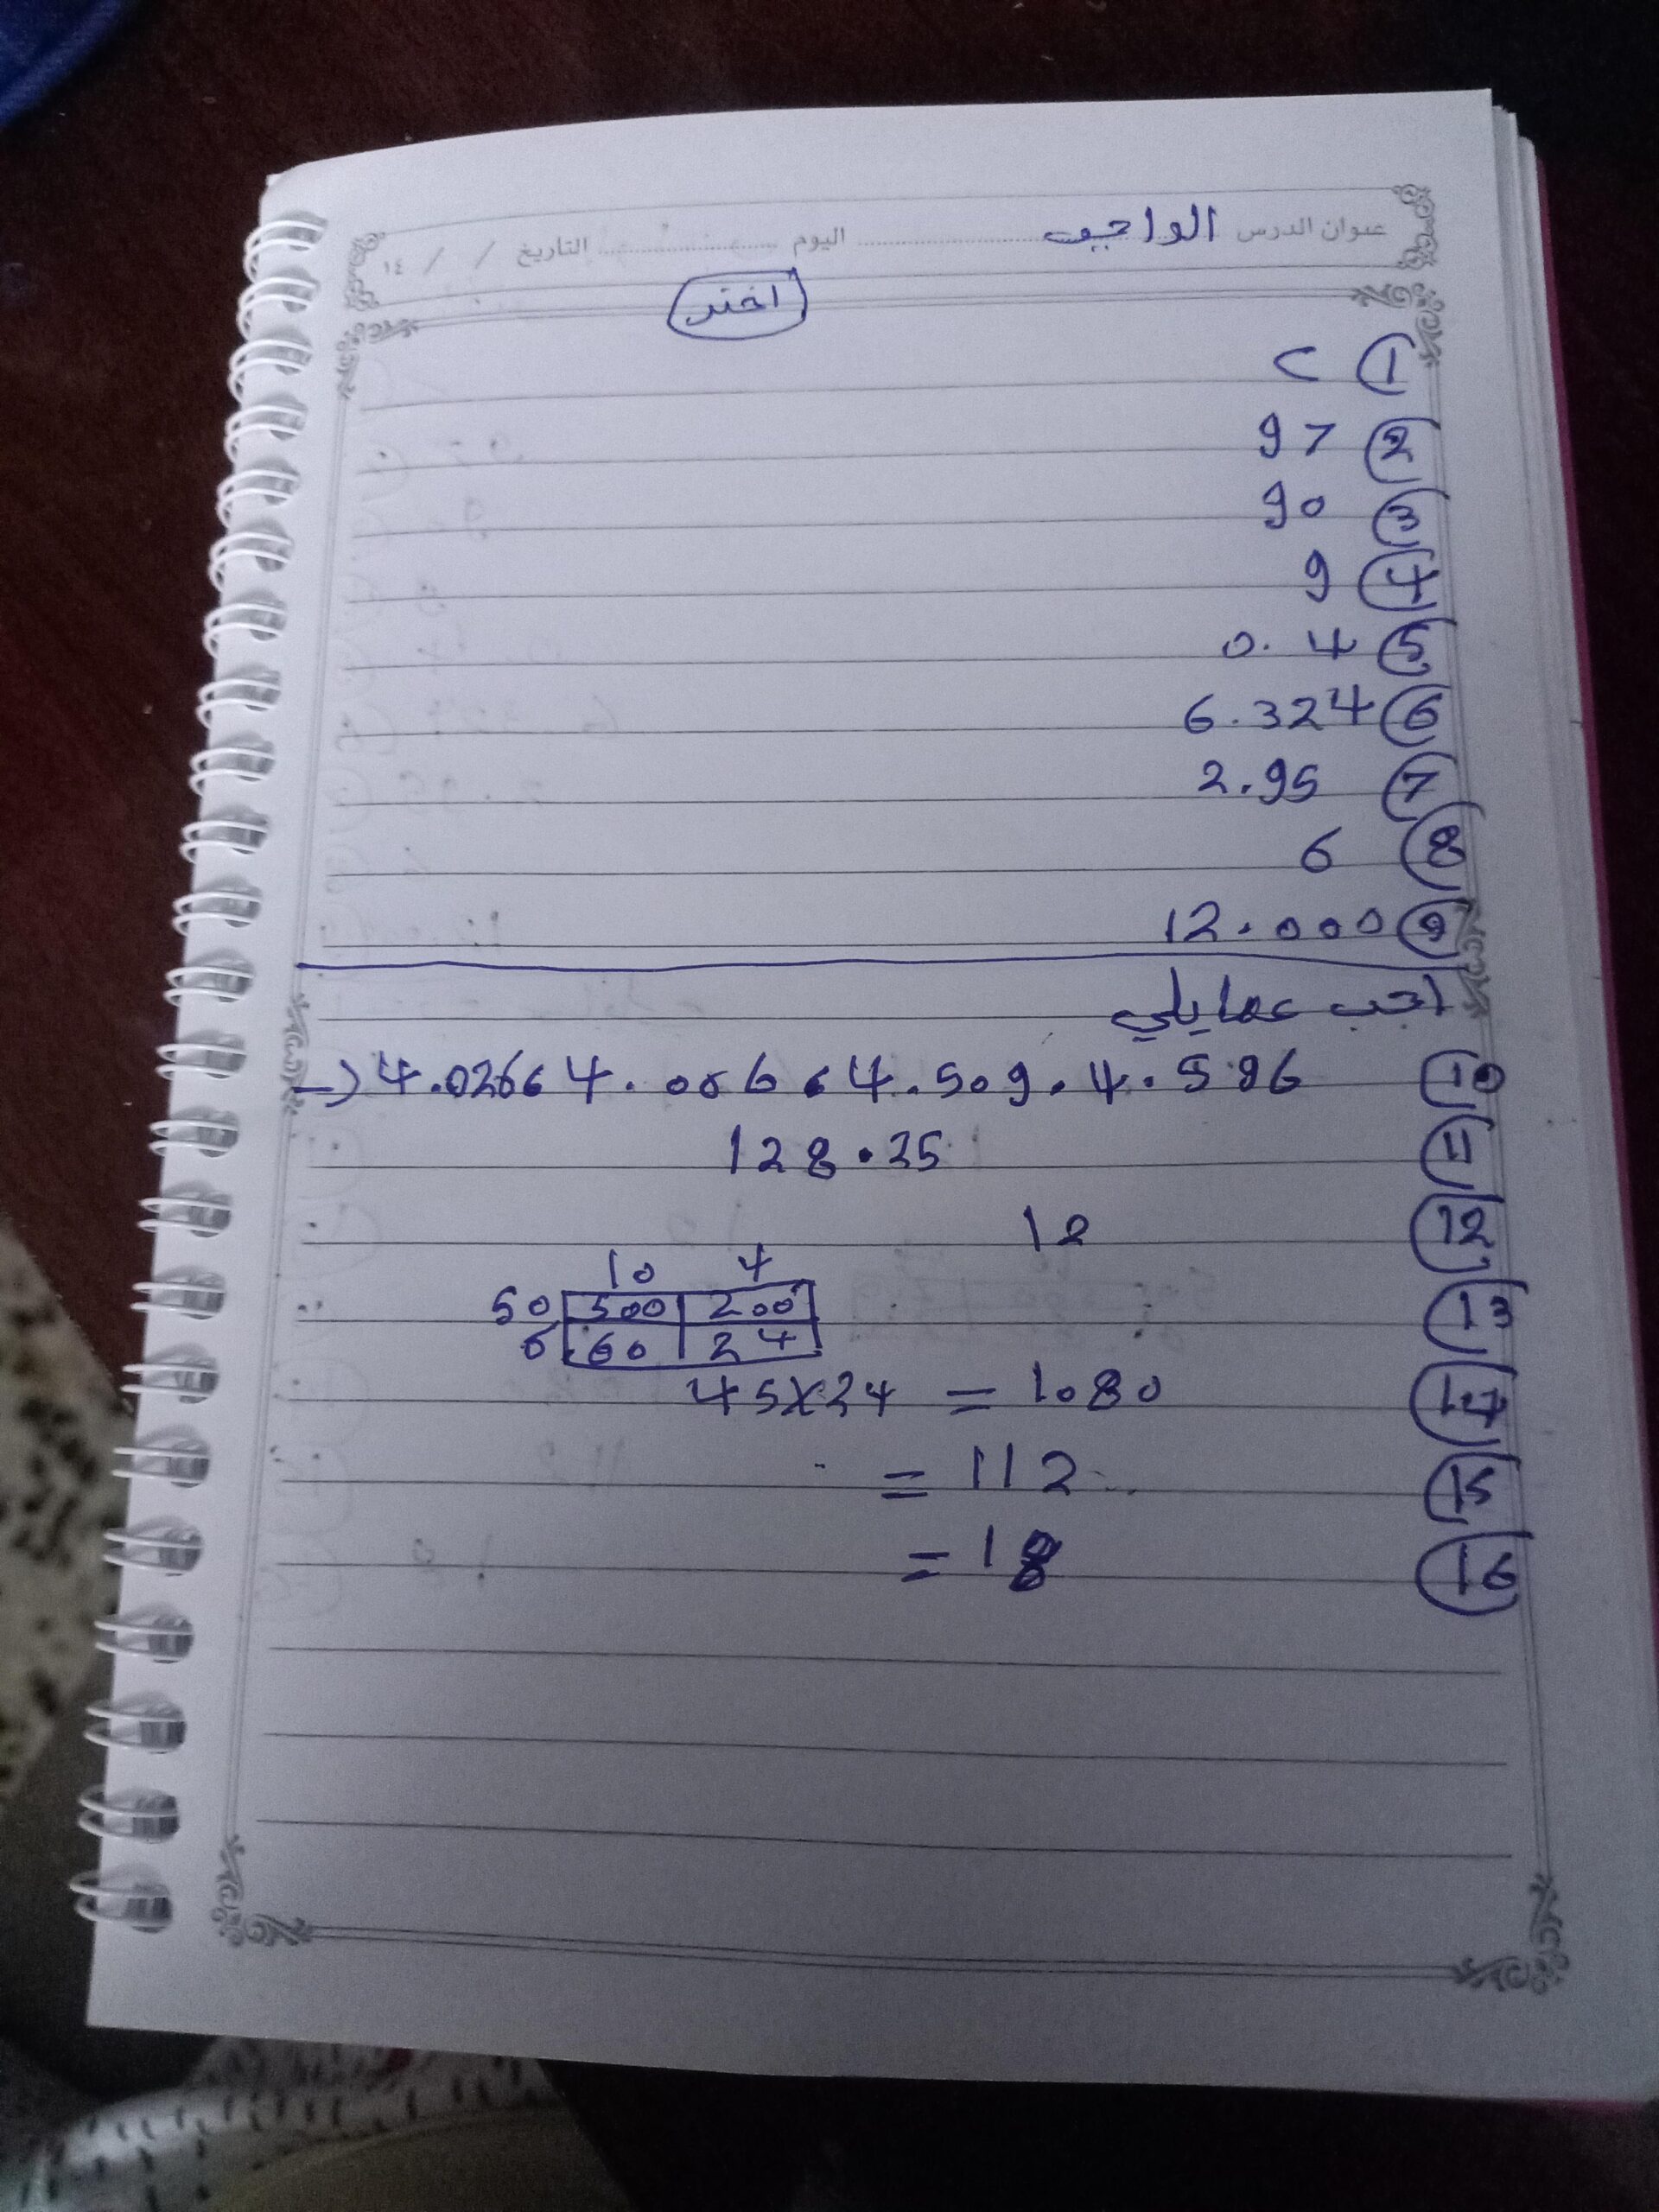 عنوان الدرس الواجب اليوم التاريخ / / ١٤
اختر
① <
② 97
③ 90
④ 9
⑤ 0.4
⑥ 6.324
⑦ 2.95
⑧ 6
⑨ 12.000
اجب عمايلي
⑩ 4.0266 4.006 6 4.509 . 4.596
⑪ 128.25
⑫ 12
⑬ 10 4
50 500 200
6 60 24
⑭ 45x24 = 1080
⑮ = 112
⑯ = 18